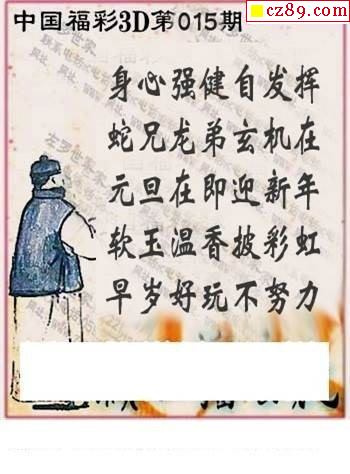 cz89.com
中国福彩3D第015期
身心强健自发挥
蛇兄龙弟玄机在
元旦在即迎新年
软玉温香披彩虹
早岁好玩不努力